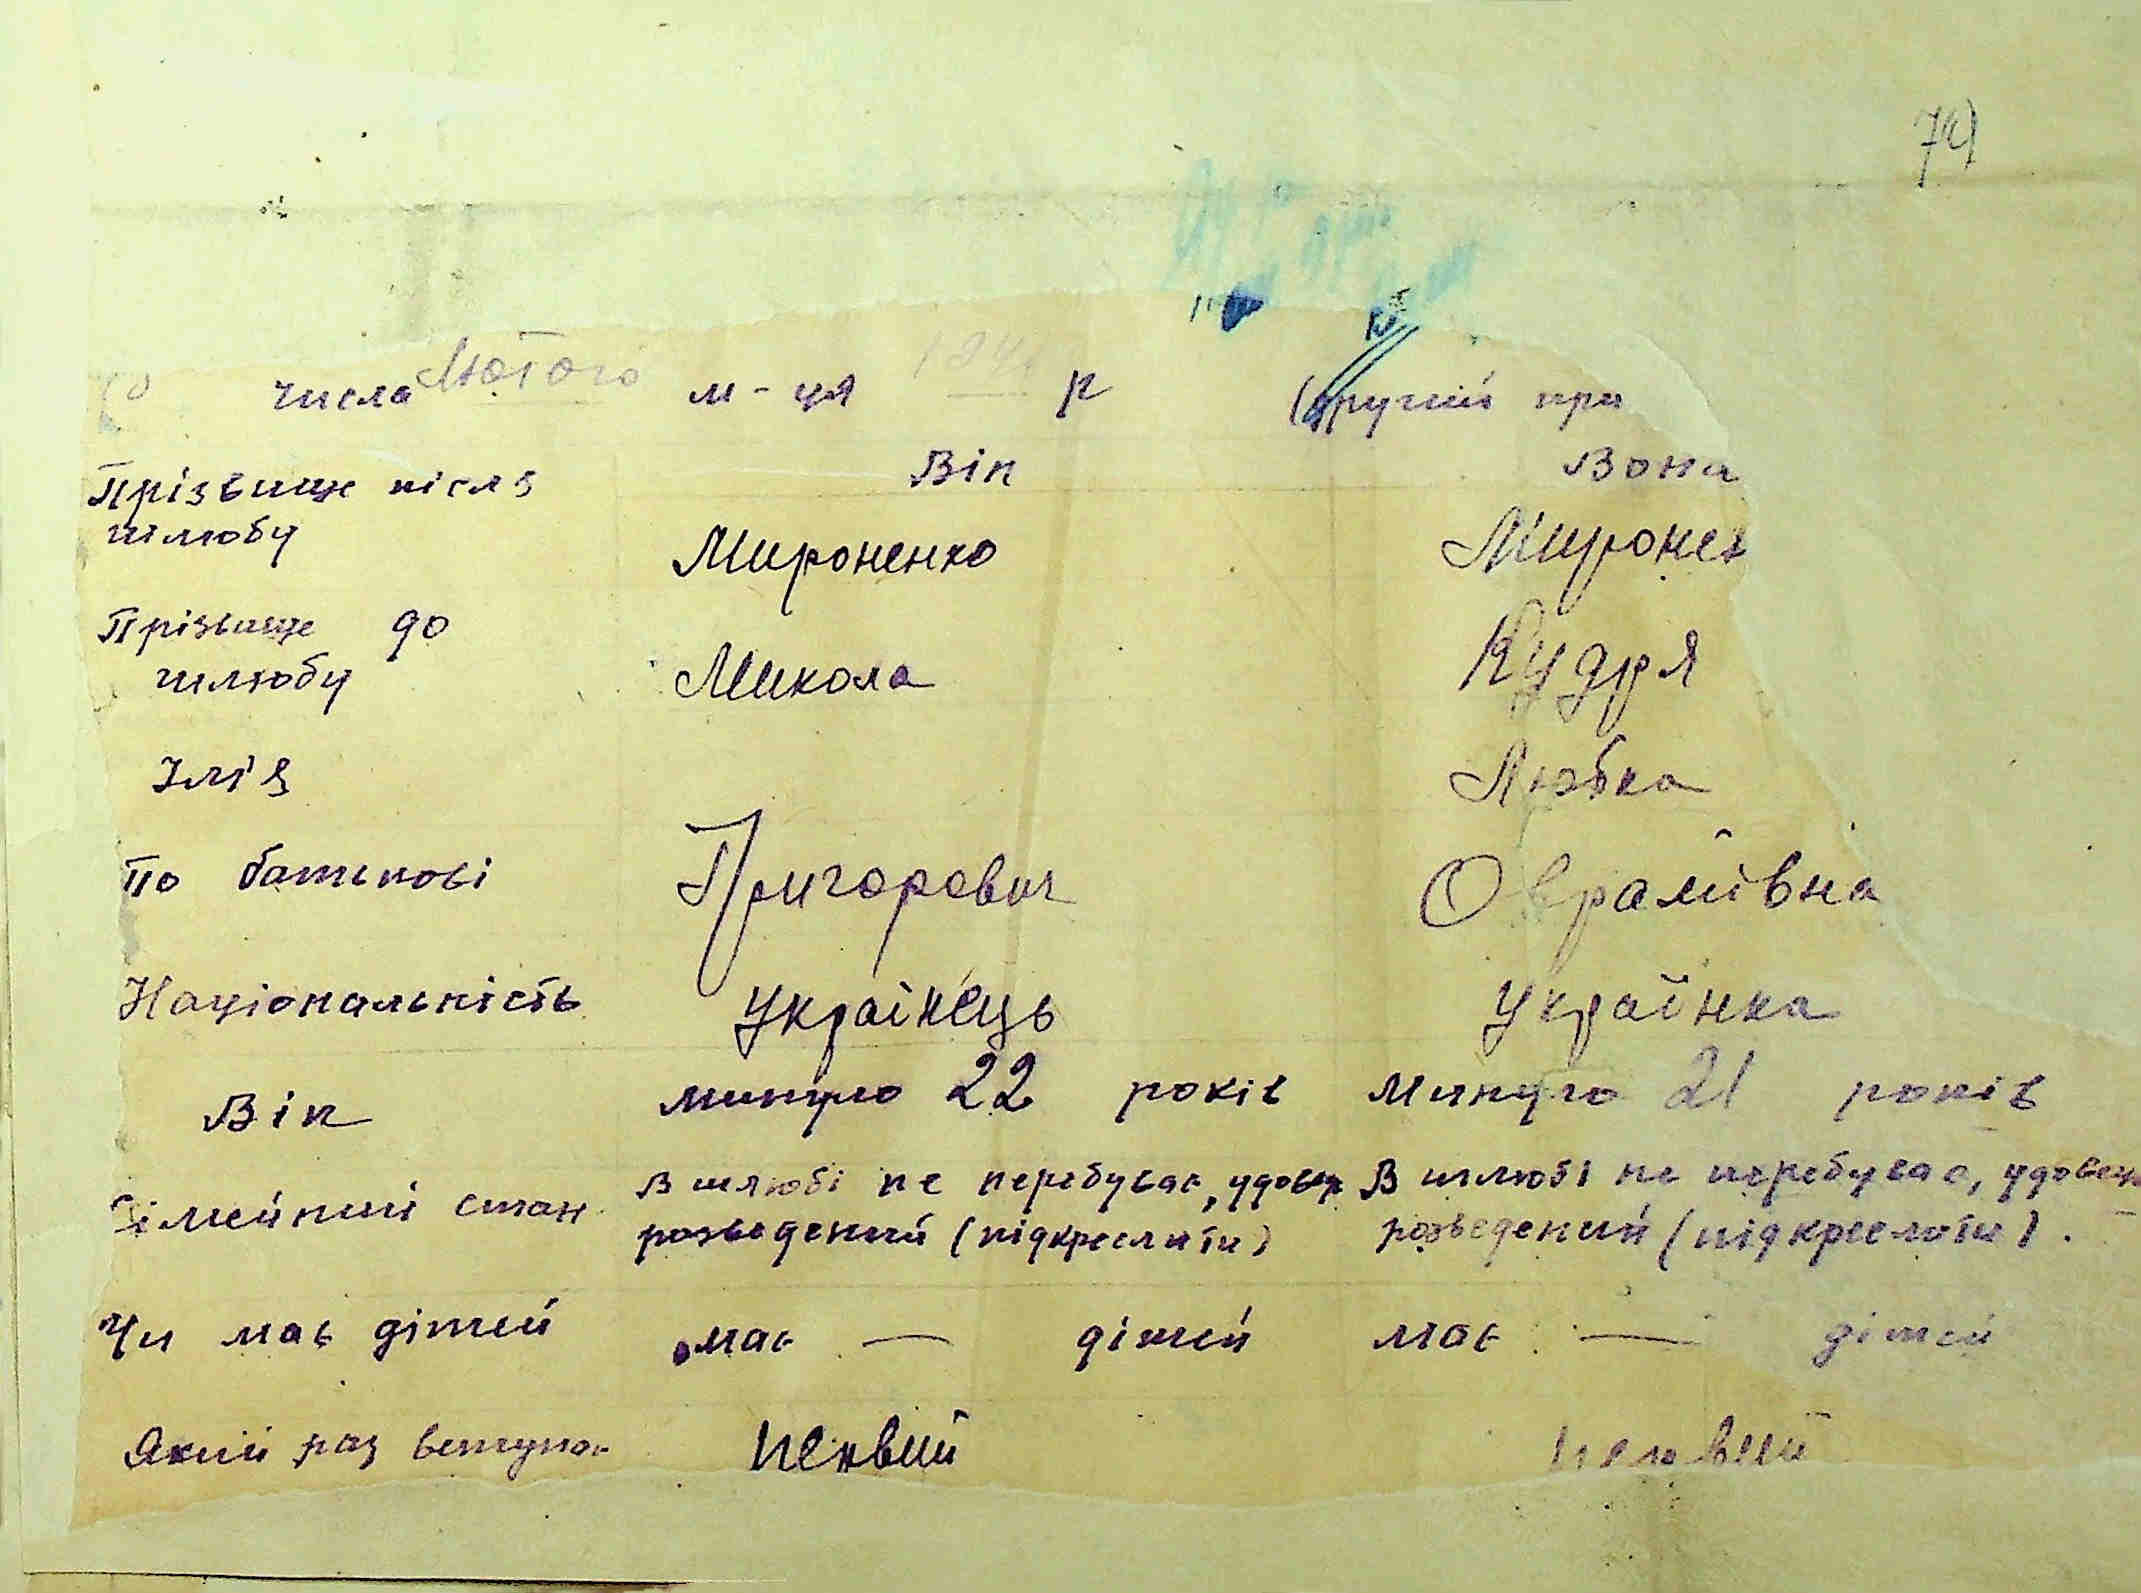 79
числа Лютого м-ця р (другий при
Він Вона
Прізвище після
шлюбу Мироненко Миронен
Прізвище до
шлюбу Микола Кудря
Імі'я Любка
По батькові Григорович Оврамівна
Національність Українець Українка
Вік минуло 22 років Минуло 21 років
Сімейний стан В шлюбі не перебуває, удовец В шлюбі не перебуває, удовец
розведений (підкреслити) розведений (підкреслити).
Чи має дітей має — дітей має — дітей
Який раз вступає первий первий